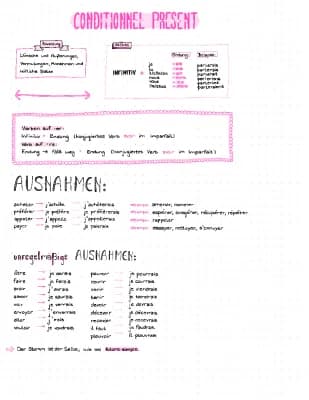 CONDITIONNEL PRESENT
Wünsche und Äußerungen,
Vermutungen, Annahmen und
höfliche Bitte
Endung: Beispiel:
INFINITIV +
je -ais parlerais
tu -ais parlerais
il/elle/on -ait parlerait
nous -ions parlerions
vous -iez parleriez
ils/elles -aient parleraient
Verben auf -er:
Infinitiv + Endung (konjugiertes Verb avoir im Imparfait)
Verb auf -re:
Endung → fällt weg + Endung (konjugiertes Verb avoir im Imparfait)
AUSNAHMEN:
acheter → j'achète → j'achèterais amener, mener
préférer → je préfère → je préférerais espérer, exagérer, récupérer, répéter
appeler → j'appelle → j'appellerais rappeler
payer → je paie → je paierais essayer, nettoyer, s'ennuyer
unregelmäßige AUSNAHMEN:
être → je serais pouvoir → je pourrais
faire → je ferais courir → je courrais
avoir → j'aurais venir → je viendrais
savoir → je saurais tenir → je tiendrais
voir → je verrais devoir → je devrais
envoyer → j'enverrais décevoir → je décevrais
aller → j'irais recevoir → je recevrais
vouloir → je voudrais il faut → il faudrait
pleuvoir → il pleuvrait
→ Der Stamm ist der Selbe, wie bei futur simple.